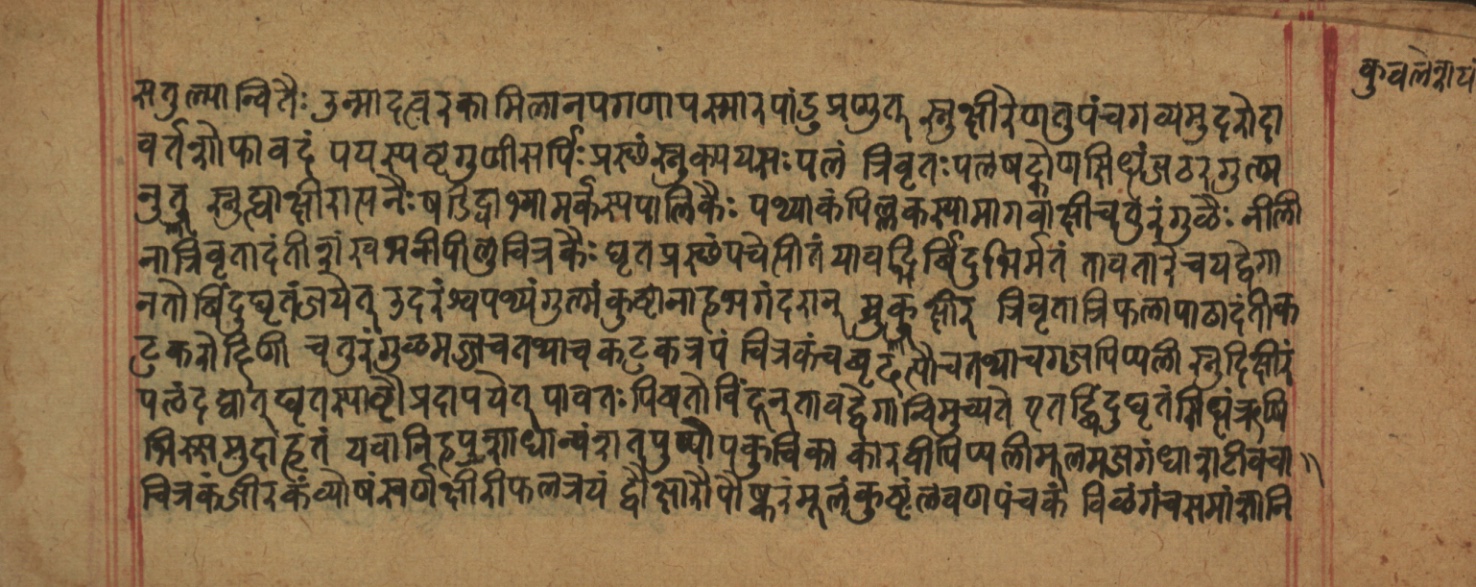 कुवलेशयं
सतुल्यान्वितैः उन्मादत्वरकामिलानपगणापस्मारपांडुप्रणुत् स्नुक्षीरेणतुपंचगव्यमुदरोदा
वर्तशोफावदं पयस्पष्टगुणीसर्पिः प्रस्छंस्नुक्पयसः पलं त्रिवृतः पलषद्केणसिधंजठरगुल्म
नुत् स्नुह्याक्षीरासनैः षडिद्वाभ्यामर्कस्यपालिकैः पथ्याकंपिल्लकस्यामागवाक्षीचतुरंगुळैः नीली
नात्रिवृतादंतीशंखमनीपीलुचित्रकैः घृतप्रस्छंपचेत्पीतं यावद्भिर्बिंदुभिर्मतं तावतारेचयद्वेगा
नतोबिंदुघृतंजयेत् उदरंश्वपथ्यंगुल्मंकुष्टानाहभगंदरान् स्नुक् क्षीर त्रिवृतात्रिफलापाठादंतीक
टुकरोहिणी चतुरंगुळमज्जाचतथाचकटुकत्रपं चित्रकंचबृहत्यौचतथाचगजपिप्पली स्नुहिक्षीरं
पलंदद्यात् घृतस्याष्टौप्रदापयेत् यावतः पिबतोबिंदून् तावद्वेगान्विमुच्यते एतद्बिंदुघृतंसिद्धंऋषि
भिस्समुदाहृतं यवानिहपुशाधान्यंशतपुष्पोपकुंचिका कारवीपिप्पलीमूलमजगंधाशटीवचा
चित्रकंजीरकंव्योषंस्वर्णक्षीरीफलत्रयं द्वौक्षारौपौष्करंमूलंकुष्ठंलवणपंचकं विळंगंचसमांशानि